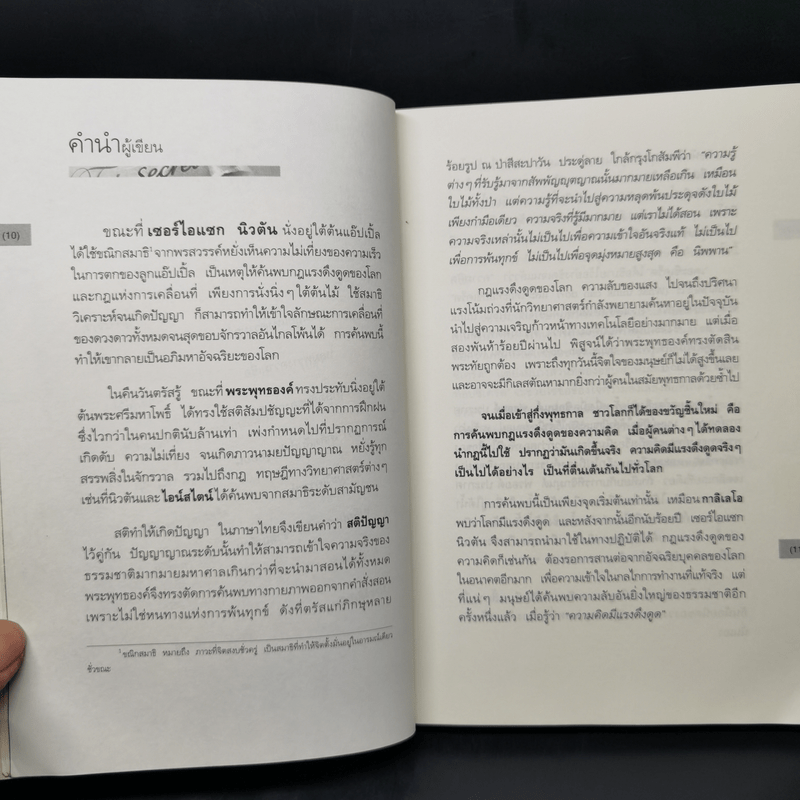 คำนำผู้เขียน
The Secret
(10)
ขณะที่ เซอร์ไอแซก นิวตัน นั่งอยู่ใต้ต้นแอ๊ปเปิ้ล
ได้ใช้ขณิกสมาธิ¹ จากพรสวรรค์หยั่งเห็นความไม่เที่ยงของความเร็ว
ในการตกของลูกแอ๊ปเปิ้ล เป็นเหตุให้ค้นพบกฎแรงดึงดูดของโลก
และกฎแห่งการเคลื่อนที่ เพียงการนั่งนิ่งๆ ใต้ต้นไม้ ใช้สมาธิ
วิเคราะห์จนเกิดปัญญา ก็สามารถทำให้เข้าใจลักษณะการเคลื่อนที่
ของดวงดาวทั้งหมดจนสุดขอบจักรวาลอันไกลโพ้นได้ การค้นพบนี้
ทำให้เขากลายเป็นอภิมหาอัจฉริยะของโลก
ในคืนวันตรัสรู้ ขณะที่ พระพุทธองค์ ทรงประทับนิ่งอยู่ใต้
ต้นพระศรีมหาโพธิ์ ได้ทรงใช้สติสัมปชัญญะที่ได้จากการฝึกฝน
ซึ่งไวกว่าในคนปกตินับล้านเท่า เพ่งกำหนดไปที่ปรากฏการณ์
เกิดดับ ความไม่เที่ยง จนเกิดภาวนามยปัญญาญาณ หยั่งรู้ทุก
สรรพสิ่งในจักรวาล รวมไปถึงกฎ ทฤษฎีทางวิทยาศาสตร์ต่างๆ
เช่นที่นิวตันและ ไอน์สไตน์ ได้ค้นพบจากสมาธิระดับสามัญชน
สติทำให้เกิดปัญญา ในภาษาไทยจึงเขียนคำว่า สติปัญญา
ไว้คู่กัน ปัญญาญาณระดับนั้นทำให้สามารถเข้าใจความจริงของ
ธรรมชาติมากมายมหาศาลเกินกว่าที่จะนำมาสอนได้ทั้งหมด
พระพุทธองค์จึงทรงตัดการค้นพบทางกายภาพออกจากคำสั่งสอน
เพราะไม่ใช่หนทางแห่งการพ้นทุกข์ ดังที่ตรัสแก่ภิกษุหลาย
¹ ขณิกสมาธิ หมายถึง ภาวะที่จิตสงบชั่วครู่ เป็นสมาธิที่ทำให้จิตตั้งมั่นอยู่ในอารมณ์เดียว
ชั่วขณะ
ร้อยรูป ณ ป่าสีสะปาวัน ประตู่ลาย ใกล้กรุงโกสัมพีว่า "ความรู้
ต่างๆ ที่รับรู้มาจากสัพพัญญุตญาณนั้นมากมายเหลือเกิน เหมือน
ใบไม้ทั้งป่า แต่ความรู้ที่จะนำไปสู่ความหลุดพ้นประดุจดังใบไม้
เพียงกำมือเดียว ความจริงที่รู้มีมากมาย แต่เราไม่ได้สอน เพราะ
ความจริงเหล่านั้นไม่เป็นไปเพื่อความเข้าใจอันจริงแท้ ไม่เป็นไป
เพื่อการพ้นทุกข์ ไม่เป็นไปเพื่อจุดมุ่งหมายสูงสุด คือ นิพพาน"
กฎแรงดึงดูดของโลก ความลับของแสง ไปจนถึงปริศนา
แรงโน้มถ่วงที่นักวิทยาศาสตร์กำลังพยายามค้นหาอยู่ในปัจจุบัน
นำไปสู่ความเจริญก้าวหน้าทางเทคโนโลยีอย่างมากมาย แต่เมื่อ
สองพันห้าร้อยปีผ่านไป พิสูจน์ได้ว่าพระพุทธองค์ทรงตัดสิน
พระทัยถูกต้อง เพราะถึงทุกวันนี้จิตใจของมนุษย์ก็ไม่ได้สูงขึ้นเลย
และอาจจะมีกิเลสตัณหามากยิ่งกว่าผู้คนในสมัยพุทธกาลด้วยซ้ำไป
จนเมื่อเข้าสู่กึ่งพุทธกาล ชาวโลกก็ได้ของขวัญชิ้นใหม่ คือ
การค้นพบกฎแรงดึงดูดของความคิด เมื่อผู้คนต่างๆ ได้ทดลอง
นำกฎนี้ไปใช้ ปรากฏว่ามันเกิดขึ้นจริง ความคิดมีแรงดึงดูดจริงๆ
เป็นไปได้อย่างไร เป็นที่ตื่นเต้นกันไปทั่วโลก
การค้นพบนี้เป็นเพียงจุดเริ่มต้นเท่านั้น เหมือนกาลิเลโอ
พบว่าโลกมีแรงดึงดูด และหลังจากนั้นอีกนับร้อยปี เซอร์ไอแซก
นิวตัน จึงสามารถนำมาใช้ในทางปฏิบัติได้ กฎแรงดึงดูดของ
ความคิดก็เช่นกัน ต้องรอการสานต่อจากอัจฉริยบุคคลของโลก
ในอนาคตอีกมาก เพื่อความเข้าใจในกลไกการทำงานที่แท้จริง แต่
ที่แน่ๆ มนุษย์ได้ค้นพบความลับอันยิ่งใหญ่ของธรรมชาติอีก
ครั้งหนึ่งแล้ว เมื่อรู้ว่า "ความคิดมีแรงดึงดูด"